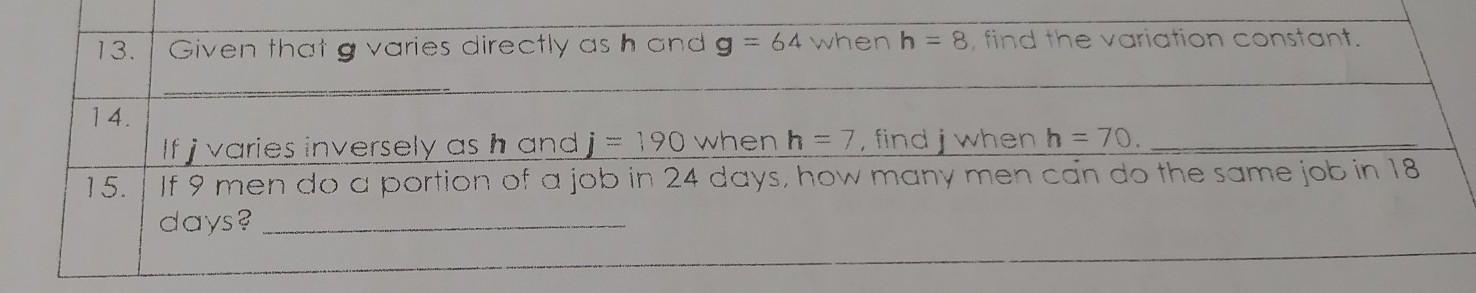 13. Given that g varies directly as h and g = 64 when h = 8, find the variation constant.
14.
If j varies inversely as h and j = 190 when h = 7, find j when h = 70.
15. If 9 men do a portion of a job in 24 days, how many men can do the same job in 18
days?